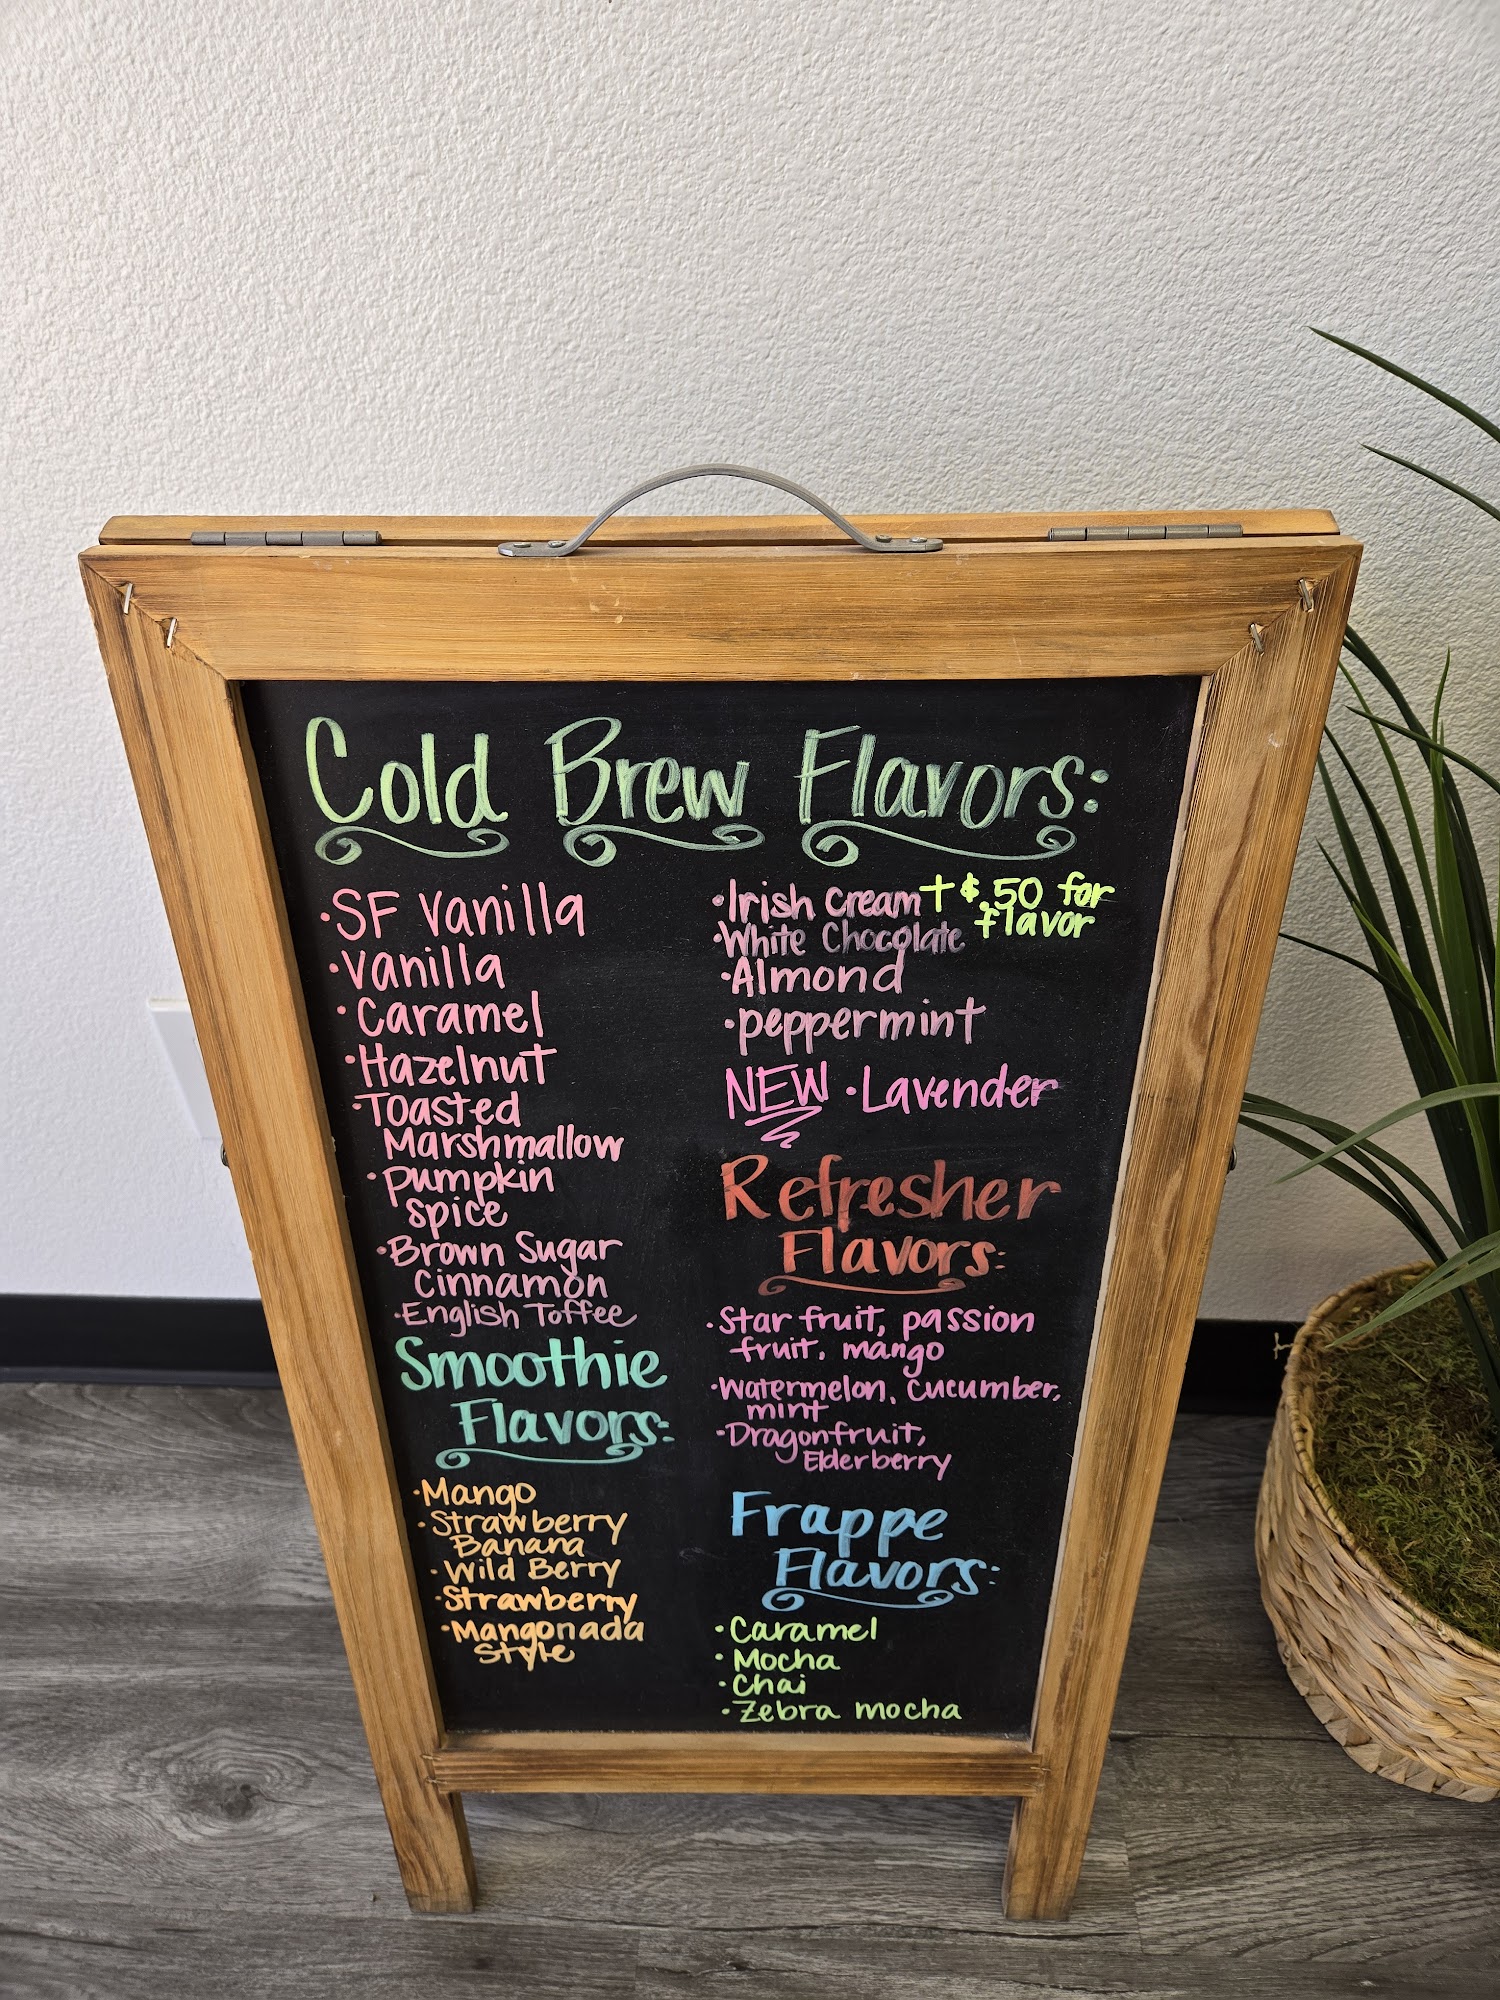 Cold Brew Flavors:
·SF Vanilla
·Vanilla
·Caramel
·Hazelnut
·Toasted
Marshmallow
·Pumpkin
Spice
·Brown Sugar
Cinnamon
·English Toffee
·Irish Cream + $.50 for
flavor
·White Chocolate
·Almond
·peppermint
NEW ·Lavender
Smoothie
Flavors:
·Mango
·Strawberry
Banana
·Wild Berry
·Strawberry
·Mangonada
Style
Refresher
Flavors:
·Star fruit, passion
fruit, mango
·Watermelon, Cucumber,
mint
·Dragonfruit,
Elderberry
Frappe
Flavors:
·Caramel
·Mocha
·Chai
·Zebra mocha